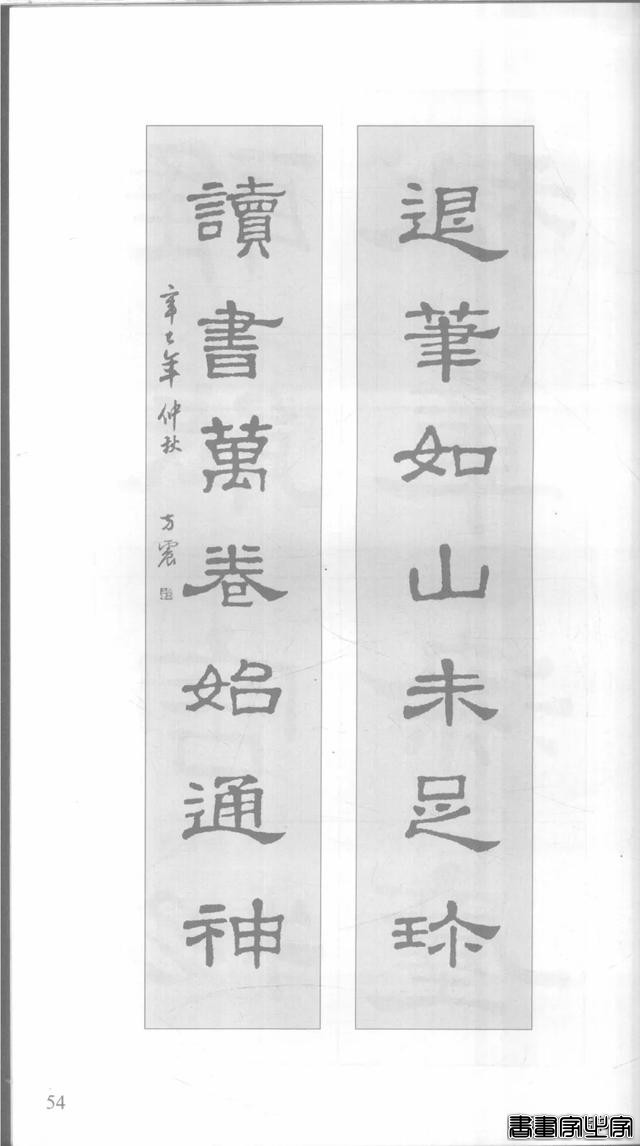 退筆如山未足珎
讀書萬卷始通神
辛巳年仲秋 方震
54
書畫家止家